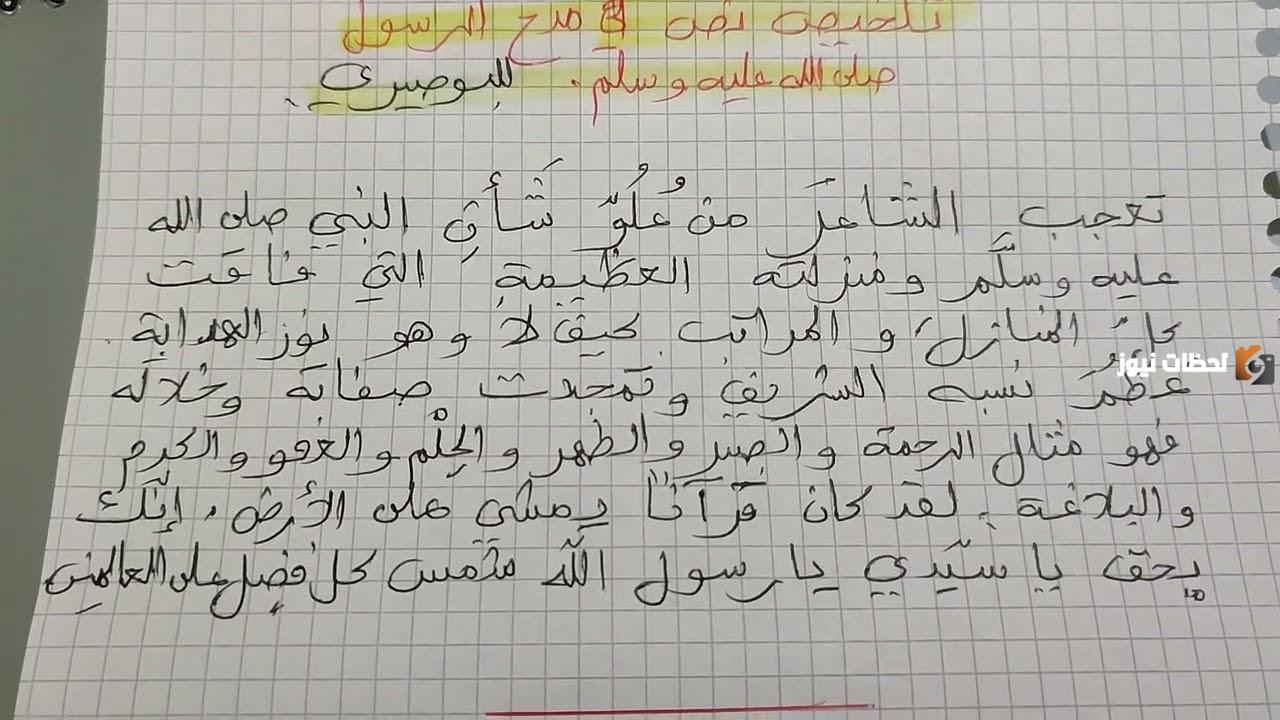 تلخيص نص في مدح الرسول
صلى الله عليه وسلم. للبوصيري.
تعجب الشاعرُ من عُلُوِّ شَأنِ النبي صلى الله
عليه وسلَّم ومنزلته العظيمةِ التي فاقت
كلّ المنازل و المراتب كيف لا وهو نور الهداية.
لحظات نيوز
عظُمَ نسبه الشريف وتمجدت صفاته وخلاله
فهو مثال الرحمة والصبر والطهر والحِلْم والعفو والكرم
والبلاغة. لقد كان قرآنًا يمشي على الأرض. إنّك
بحق يا سيّدي يا رسول اللّه شمس كل فضل على العالمين